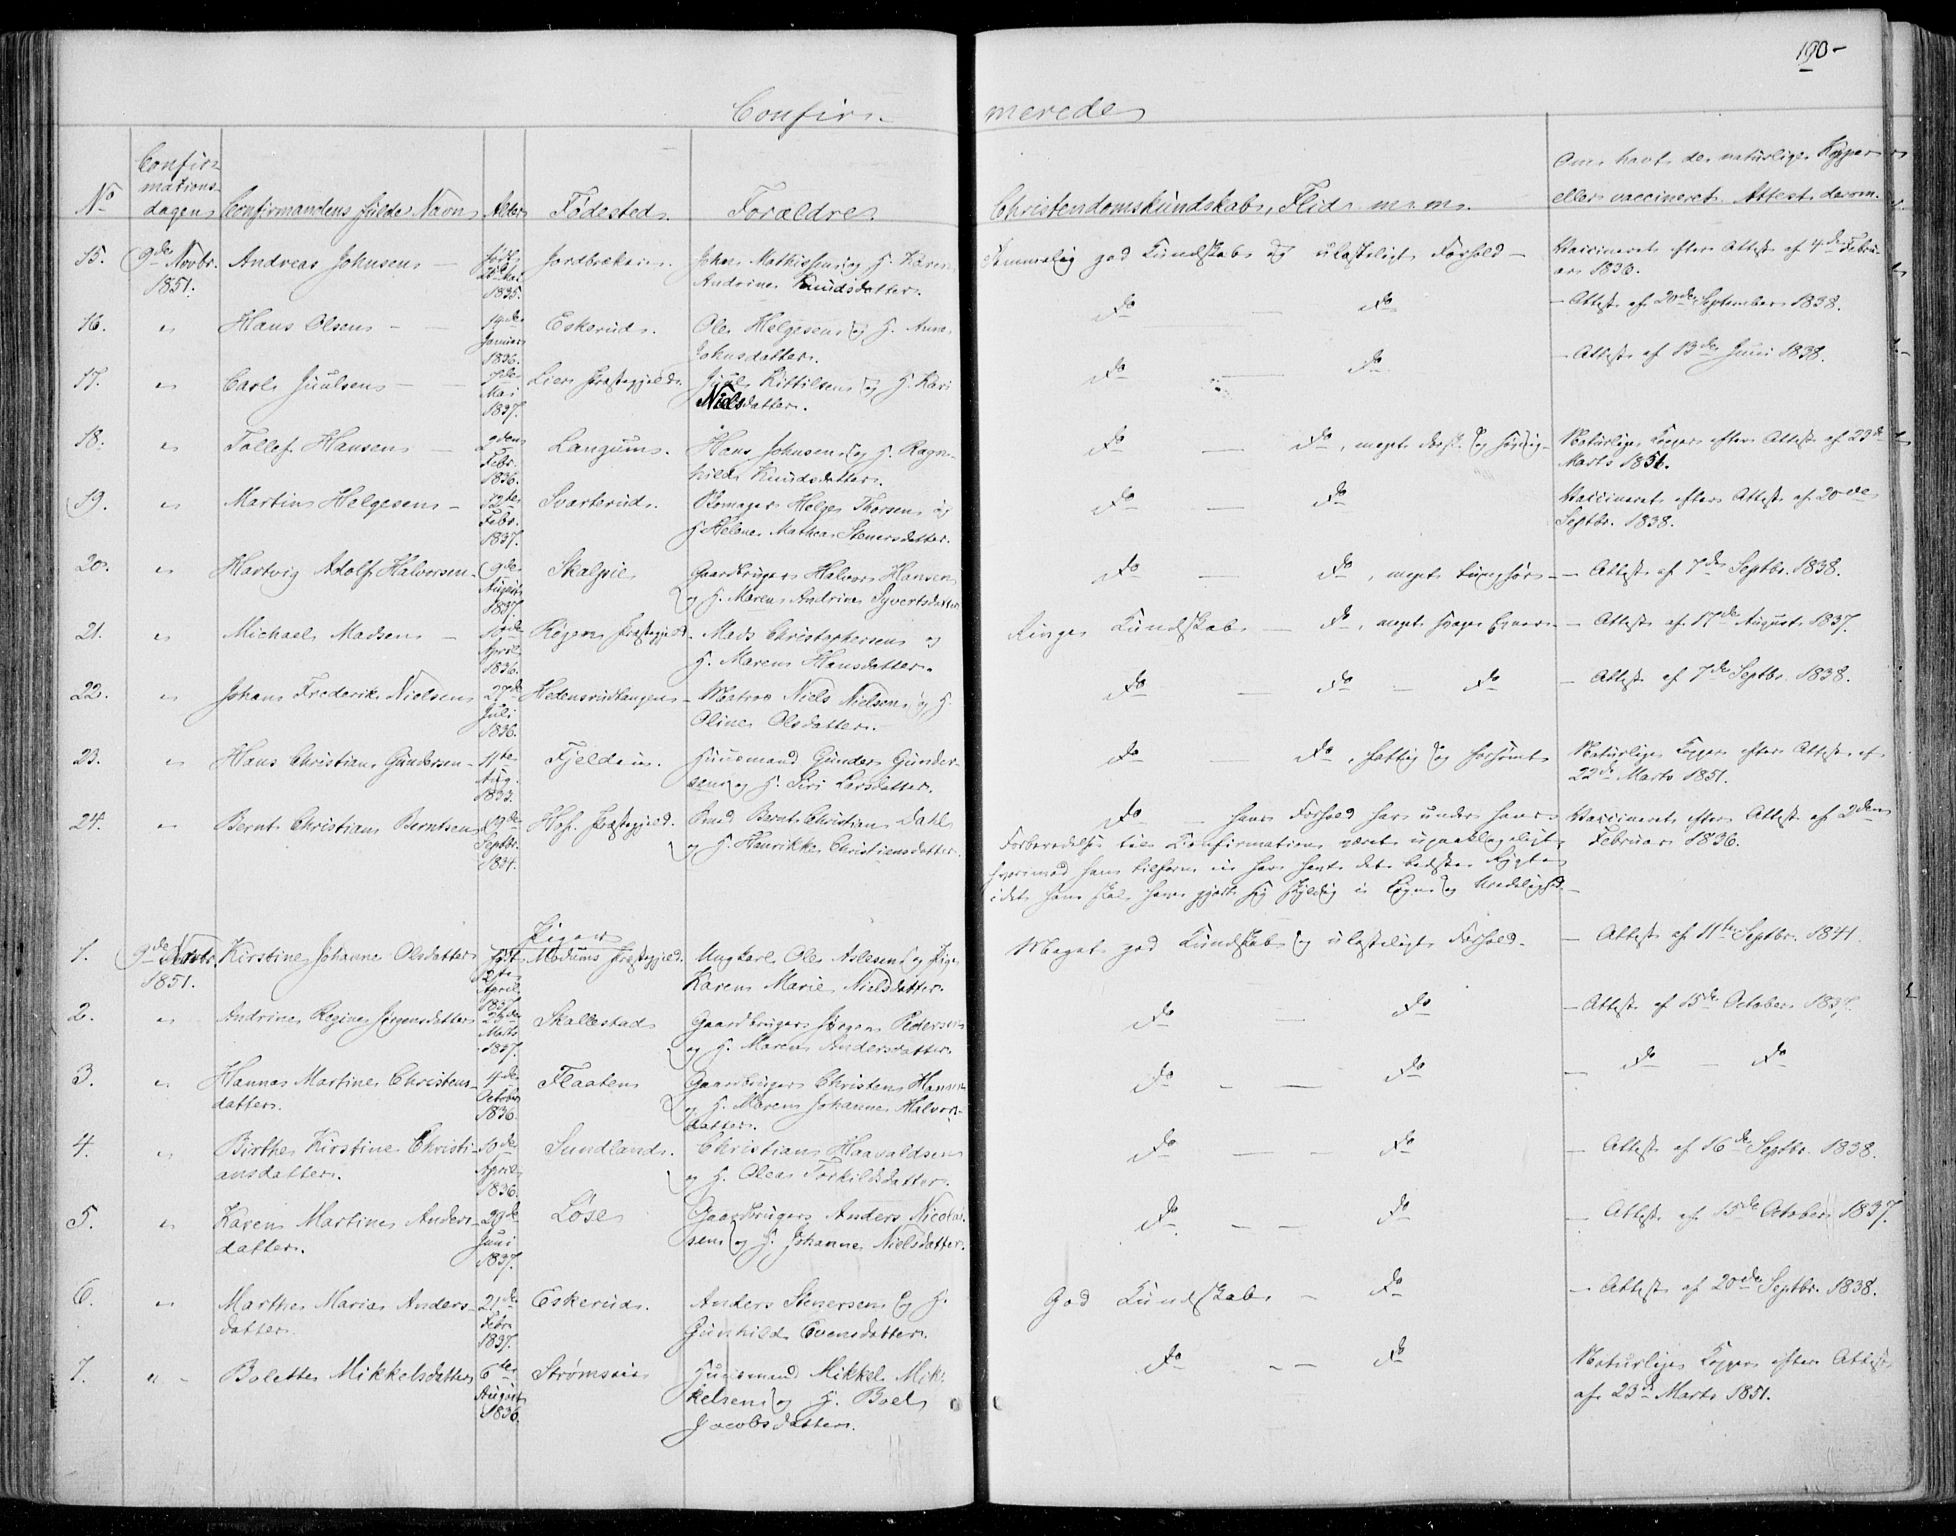 190-
Confir- merede
No
Confir-
mations-
dagen
Confirmandens fulde Navn
Alder
Fødested
Forældre
Christendomskundskab, Flid m.m.
Om havt de naturlige Kopper
eller vaccineret. Attest derom.
15. 9de Novbr. Andreas Johnsen Jordbrækken John Mathissen og H. Karen Temmelig god Kundskab og ulasteligt Forhold - Vaccineret efter Attest af 4de Febru-
1851. 1835. Andrine Knudsdatter. ar 1836.
16. " Hans Olsen - 14de Eskerud. Ole Helgesen og H. Anne Do - Do - Attest af 20de September 1838.
Januar
1836. Johnsdatter.
17. " Carl Juulsen - 7de Lier Præstegjeld. Juul Kittilsen og H. Kari Do - Do - Attest af 13de Juni 1838.
Mai
1837. Nielsdatter.
18. " Tollef Hansen - 2den Langum. Hans Johnsen og H. Ragn- Do Do, meget Naturlige Kopper efter Attest af 23de
Febr.
1836. hilde Knudsdatter. Marts 1851.
19. " Martin Helgesen - 12te Svarterud. Helge Thorsen og Do - Do Vaccineret efter Attest af 20de
Febr.
1837. H. Helene Mathea Stenersdatter. Septbr. 1838.
20. " Hartvig Adolf Halvorsen 9de Skalpie Gaardbruger Halvor Hansen Do - Do, meget tunghør - Attest af 7de Septbr. 1838.
August
1837. og H. Maren Andrine Syvertsdatter
21. " Michael Madsen - Røgen Præstegjeld. Mads Christophersen og Ringe Kundskab - Do, meget svage Evner - Attest af 17de August 1837.
April
1836. H. Maren Hansdatter.
22. " Johan Frederik Nielsen 27de Hedensrudtangen Matros Niels Nielsen og H. Do - Do - Do - Attest af 7de Septbr. 1838.
Juli
1836. Oline Olsdatter.
23. " Hans Christian Gundersen 11te Fjeldeie. Huusmand Gunder Gunder- Do - Do, fattig og forsømt Naturlige Kopper efter Attest af
Aug.
1833. sen og H. Siri Larsdatter. 22de Marts 1851.
24. " Bernt Christian Berntsen 19de Hof Præstegjeld. Bernt Christian Dahl Do - hans Forhold har under hans Vaccineret efter Attest af 2den
Septbr.
1834. og H. Henrikke Christiansdatter. Forberedelse til Confirmation været upaaklageligt, Februar 1836.
hvorimod han tilforn ei har havt det bedste Rygte,
idet han skal have gjort sig skyldig i Løgn og Uredelighed. -
Piger
1. 9de Novbr. Kirstine Johanne Olsdatter født Modums Præstegjeld. Ungkarl Ole Aslesen og Pige Meget god Kundskab og ulasteligt Forhold. - Attest af 11te Septbr. 1841.
1851. 12te
April
1837. Karen Marie Nielsdatter.
2. " Andrine Regine Jørgensdatter Skallestad Gaardbruger Jørgen Pedersen Do - Do - Attest af 15de October 1837.
Marts
1837. og H. Maren Andersdatter.
3. " Hanna Martine Christens- 4de Flaaten Gaardbruger Christen Hansen Do - Do - Do - Do
datter. October
1836. og H. Maren Johanne Halvors-
datter.
4. " Birthe Kirstine Christi- 10de Sundland. Christian Haavaldsen Do - Do - Attest af 16de Septbr. 1838.
ansdatter. April
1836. og H. Olea Torkildsdatter.
5. " Karen Martine Anders- 29de Løse Gaardbruger Anders Nicolai- Do - Do - Attest af 15de October 1837.
datter. Juni
1837. sen og H. Johanne Nielsdatter.
6. " Marthe Maria Anders- 21de Eskerud. Anders Stenersen og H. God Kundskab - Do - Attest af 20de Septbr. 1838.
datter. Febr.
1837. Gunhild Evensdatter.
7. " Bolette Mikkelsdatter 6te Strømseie Huusmand Mikkel Mik- Do - Do Naturlige Kopper efter Attest
August
1836. kelsen og H. Boel af 23de Marts 1851.
Jacobsdatter.